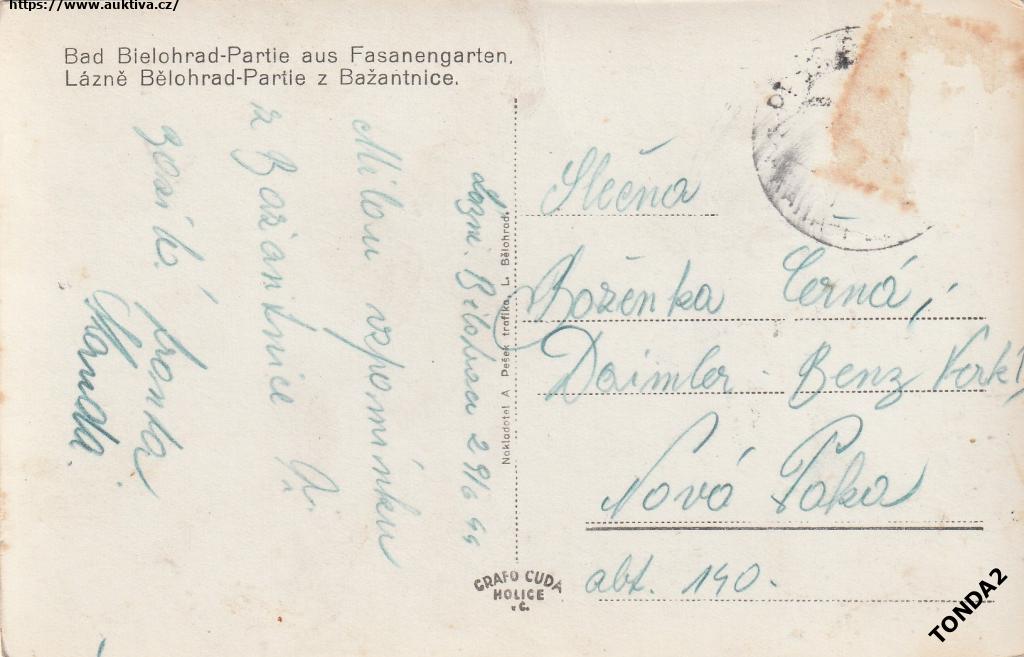 https://www.auktiva.cz/
Bad Bielohrad-Partie aus Fasanengarten.
Lázně Bělohrad-Partie z Bažantnice.
Lázně. Bělohrad 29/6 44
Milou vzpomínku
z Bažantnice
Franka
Manda.
Nakladatel A Pešek trafika, L. Bělohrad.
Slečna
Boženka Černá,
Daimler - Benz Verk
Nová Paka
abt. 190.
GRAFO CUDA
HOLICE
v Č.
TONDA2